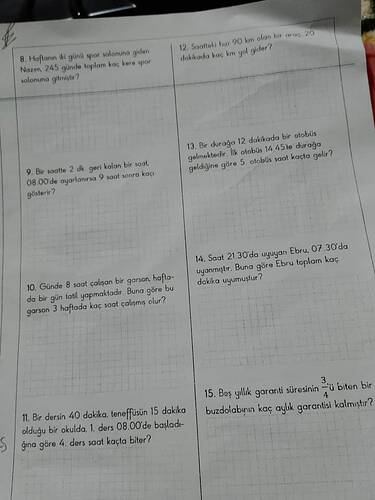 8. Haftanın iki günü spor salonuna giden
Nazen, 245 günde toplam kaç kere spor
salonuna gitmiştir?
9. Bir saatte 2 dk. geri kalan bir saat,
08.00'de ayarlanırsa 9 saat sonra kaçı
gösterir?
10. Günde 8 saat çalışan bir garson, hafta-
da bir gün tatil yapmaktadır. Buna göre bu
garson 3 haftada kaç saat çalışmış olur?
11. Bir dersin 40 dakika, teneffüsün 15 dakika
olduğu bir okulda, 1. ders 08.00'de başladı-
ğına göre 4. ders saat kaçta biter?
12. Saatteki hızı 90 km olan bir araç, 20
dakikada kaç km yol gider?
13. Bir durağa 12 dakikada bir otobüs
gelmektedir. İlk otobüs 14.45'te durağa
geldiğine göre 5. otobüs saat kaçta gelir?
14. Saat 21.30'da uyuyan Ebru, 07.30'da
uyanmıştır. Buna göre Ebru toplam kaç
dakika uyumuştur?
15. Beş yıllık garanti süresinin 3/4'ü biten bir
buzdolabının kaç aylık garantisi kalmıştır?